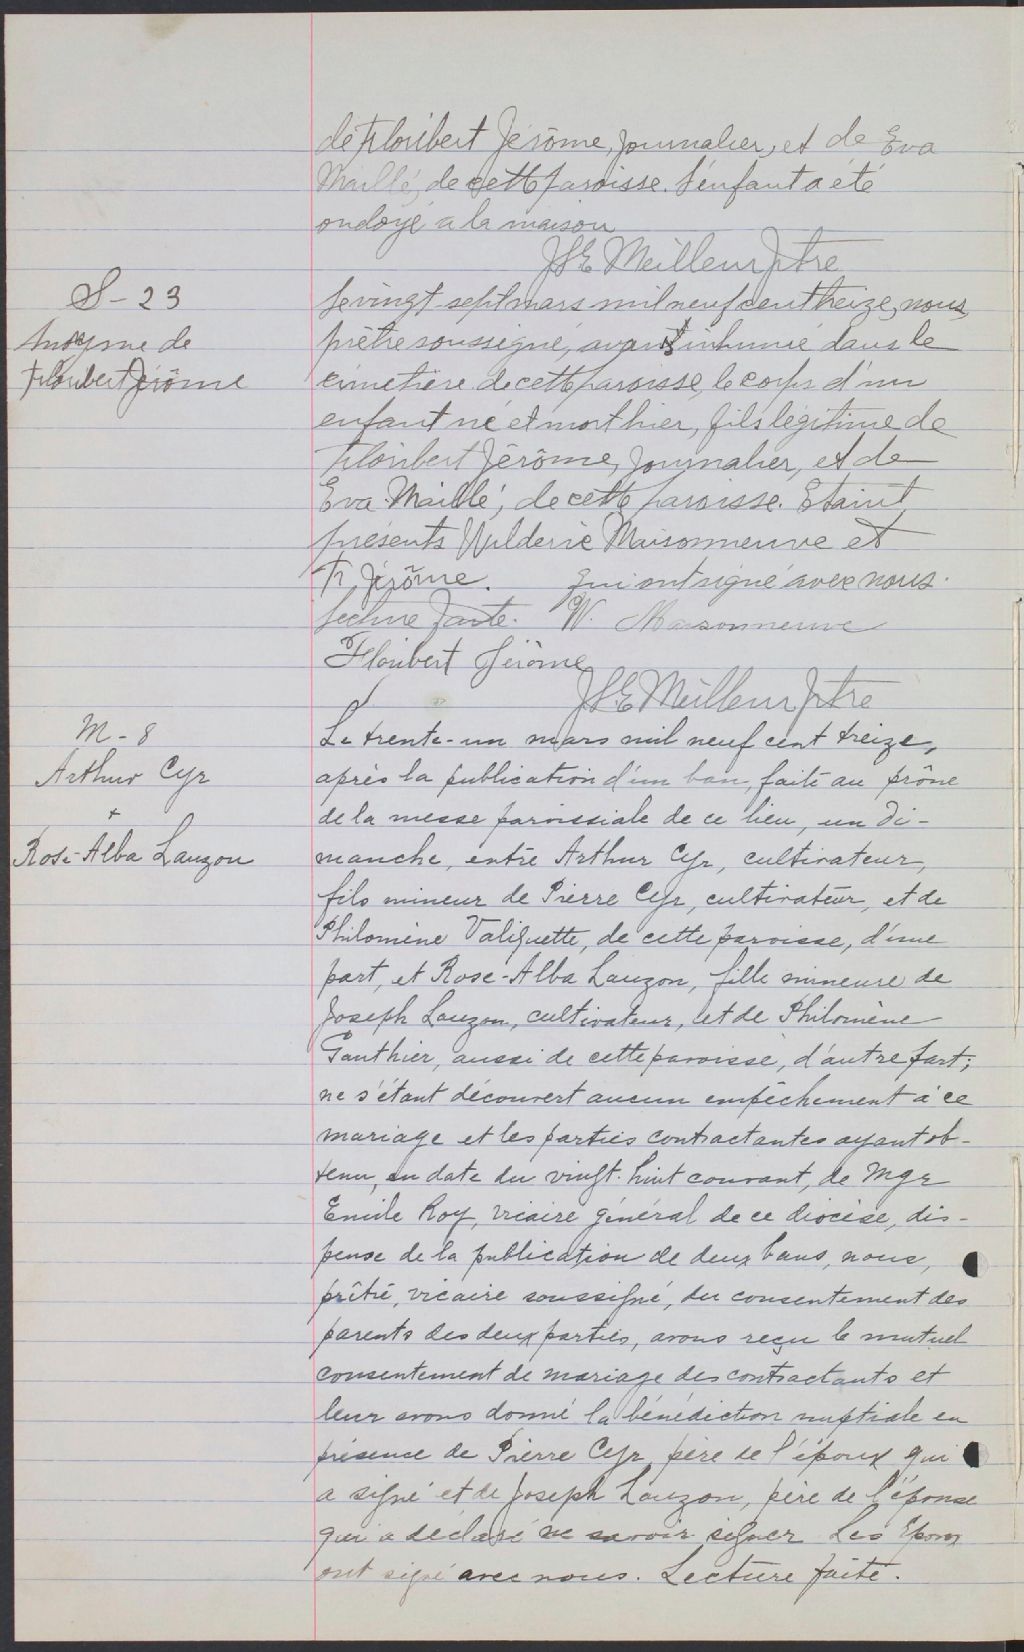 de Floribert Jérôme, journalier, et de Eva
Maillé, de cette paroisse. L'enfant a été
ondoyé a la maison
J.S.E. Meilleur Ptre
S - 23
Anonyme de
Floribert Jérôme
Le vingt-sept mars mil neuf cent treize, nous,
prêtre soussigné, avons inhumé dans le
cimetière de cette paroisse, le corps d'un
enfant né et mort hier, fils légitime de
Floribert Jérôme, journalier, et de
Eva Maillé, de cette paroisse. Etaient
présents Wulderic Maisonneuve et
F. Jérôme. qui ont signé avec nous.
Lecture faite. W. Maisonneuve
Floribert Jérôme
J.S.E. Meilleur Ptre
M - 8
Arthur Cyr
+
Rose-Alba Lauzon
Le trente-un mars mil neuf cent treize,
après la publication d'un ban, faite au prône
de la messe paroissiale de ce lieu, un di-
manche, entre Arthur Cyr, cultivateur,
fils mineur de Pierre Cyr, cultivateur, et de
Philomène Valiquette, de cette paroisse, d'une
part, et Rose-Alba Lauzon, fille mineure de
Joseph Lauzon, cultivateur, et de Philomène
Gauthier, aussi de cette paroisse, d'autre part;
ne s'étant découvert aucun empêchement à ce
mariage et les parties contractantes ayant ob-
tenu, en date du vingt-huit courant, de Mgr
Emile Roy, vicaire général de ce diocèse, dis-
pense de la publication de deux bans, nous,
prêtre, vicaire soussigné, du consentement des
parents des deux parties, avons reçu le mutuel
consentement de mariage des contractants et
leur avons donné la bénédiction nuptiale en
présence de Pierre Cyr, père de l'époux qui
a signé et de Joseph Lauzon, père de l'épouse
qui a déclaré ne savoir signer. Les Epoux
ont signé avec nous. Lecture faite.